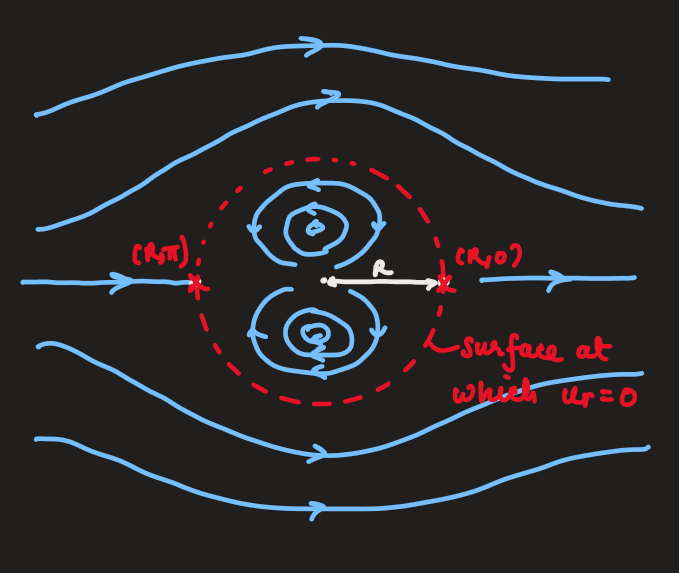 (R,π)
(R,0)
R
surface at
which ur=0